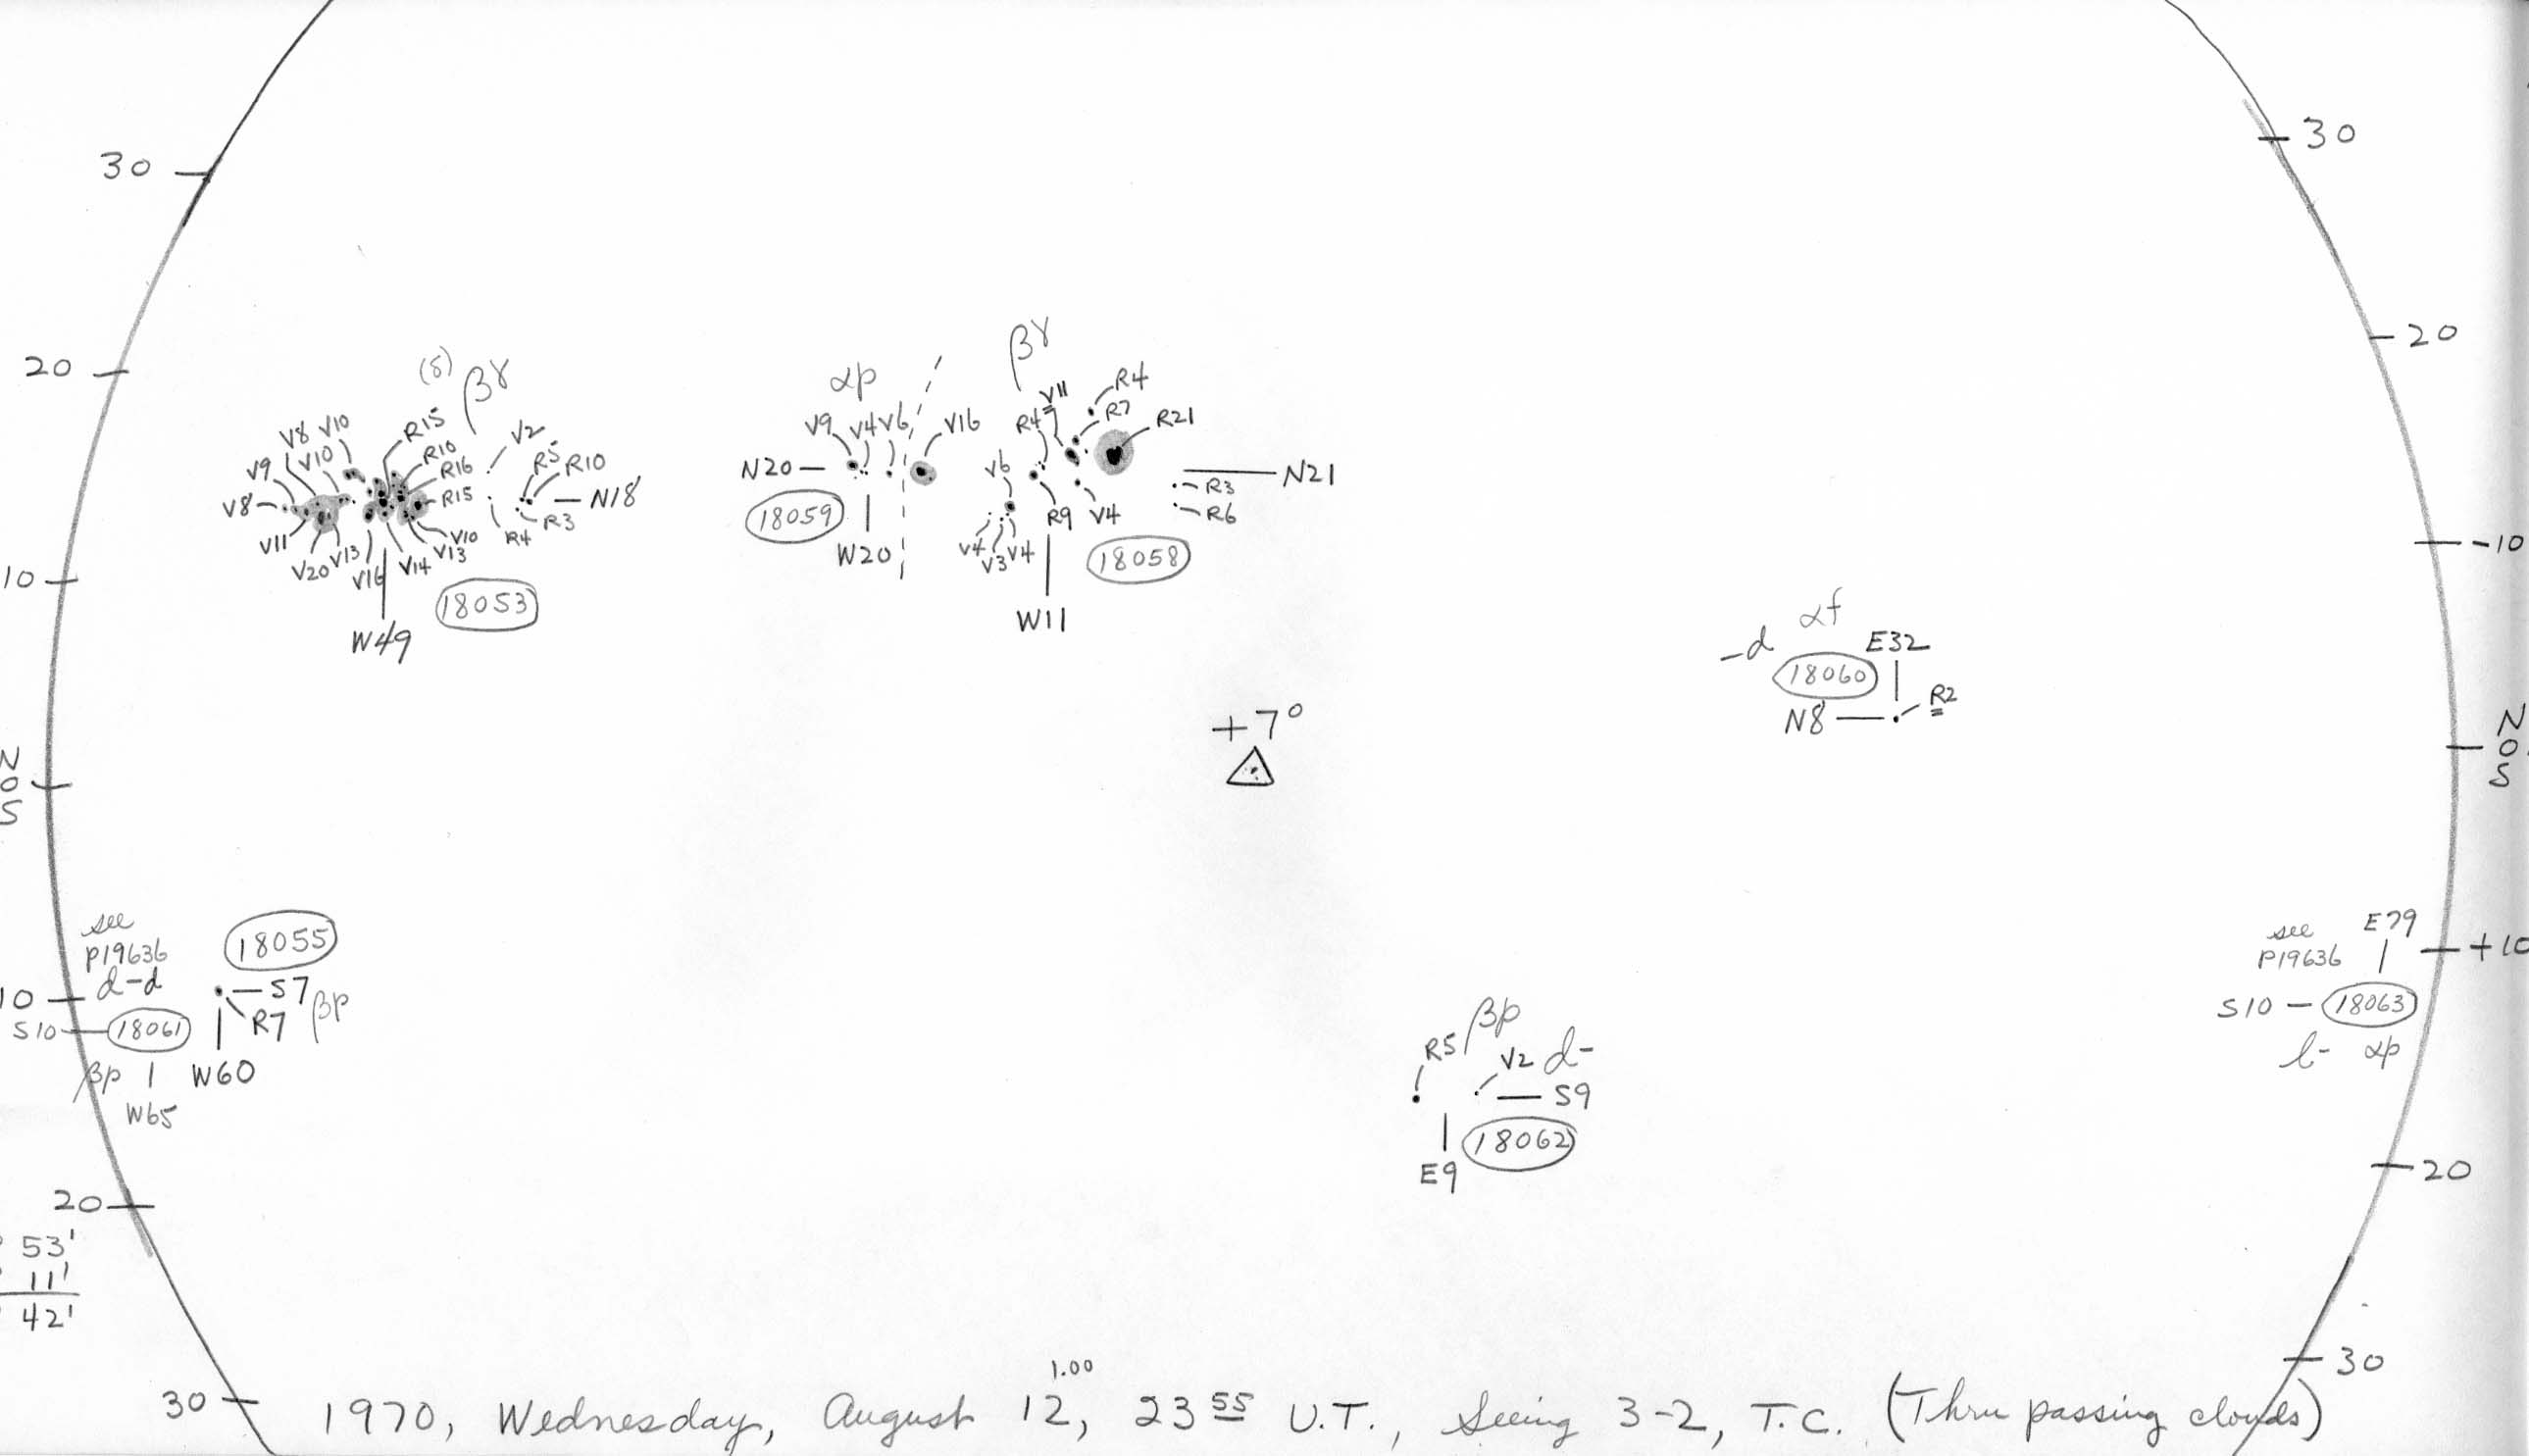 30
30
20
20
(δ) βγ
V8 V10 R15 V2
V9 V10 R10 R5 R10
R16
V8 R15 N18
R3
V11 R4
V20 V13 V16 V14 V13 V10
18053
W49
αp
V9 V4 V6 V16
N20
18059
W20
βγ
V11 R4
R4 R7 R21
V6 N21
R3
R9 V4 R6
V4 V3 V4
18058
W11
10
-10
αf
-d E32
18060
R2
N8
+7°
N
0
S
N
0
S
see
P19636
d-d
18055
10
S7
R7 βp
S10 18061
βp W60
W65
see
P19636
E79
+10
S10 18063
l- αp
βp
R5 V2 d-
S9
18062
E9
20
20
53'
11'
42'
30
30
1.00
1970, Wednesday, August 12, 23 55 U.T., Seeing 3-2, T.C. (Thru passing clouds)